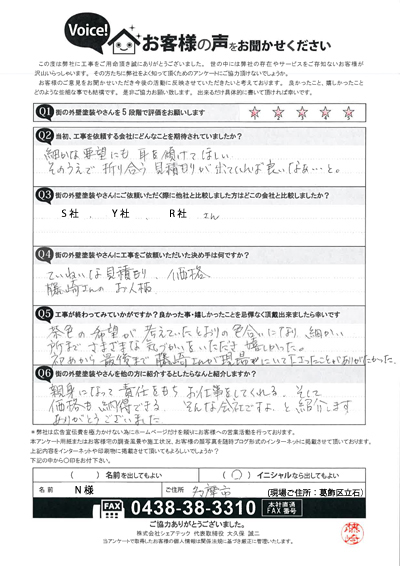 Voice!
お客様の声をお聞かせください
この度は弊社に工事をご用命頂き誠にありがとうございました。 世の中には弊社の存在やサービスをご存知ないお客様が
沢山いらっしゃいます。 その方たちに弊社をよく知って頂くためのアンケートにご協力頂けないでしょうか。
お客様のご意見をお聞かせいただき今後の活動に反映させていただきたいと考えております。 良かったこと、嬉しかったこと
どのような些細な事でも結構です。 是非ご協力お願い致します。 出来るだけ具体的に書いて頂ければ幸いです。
Q1 街の外壁塗装やさんを5段階で評価をお願いします
Q2 当初、工事を依頼する会社にどんなことを期待されていましたか?
細かな要望にも 耳を傾けてほしい
そのうえで 折り合う 見積もりが出てくれば良いなぁ…と。
Q3 街の外壁塗装やさんにご依頼いただく際に他社と比較しました方はどこの会社と比較しましたか?
S社 、 Y社 、 R社 さん
Q4 街の外壁塗装やさんに工事をご依頼いただいた決め手は何ですか?
ていねいな見積もり、価格
藤崎さんの お人柄
Q5 工事が終わってみていかがですか?良かった事・嬉しかったことを忌憚なく頂戴出来ましたら幸いです
茶色の希望が 考えていたとおりの色合いになり、細かい
所まで さまざまな気づかいをいただき 嬉しかった。
初めから 最後まで 藤崎さんが 現場にいて下さったことがありがたかった。
Q6 街の外壁塗装やさんを他の方に紹介するとしたらなんと紹介しますか?
親身になって 責任をもち お仕事をしてくれる、そして
価格も 納得できる、 そんな会社ですよ。と 紹介します
ありがとうございました
*弊社は広告宣伝費を極力かけない為にホームページだけを頼りにお客様への営業活動を行っております。
本アンケート用紙またはお客様宅の調査風景や施工状況、お客様の顔写真を随時ブログ形式のインターネットに掲載させて頂いております。
上記内容をインターネットや印刷物に掲載させて頂いてもよろしいでしょうか?
下記の中から○印をお付下さい。
( ) 名前を出してもよい ( ○ ) イニシャルなら出してもよい
名前 N様 ご住所 多摩市 (現場ご住所:葛飾区立石)
FAX 0438-38-3310 本社直通 FAX番号
ご協力ありがとうございました。
株式会社シェアテック 代表取締役 大久保 誠二
当アンケートで取得したお客様の個人情報は関係法規に基づき厳正に管理いたします。